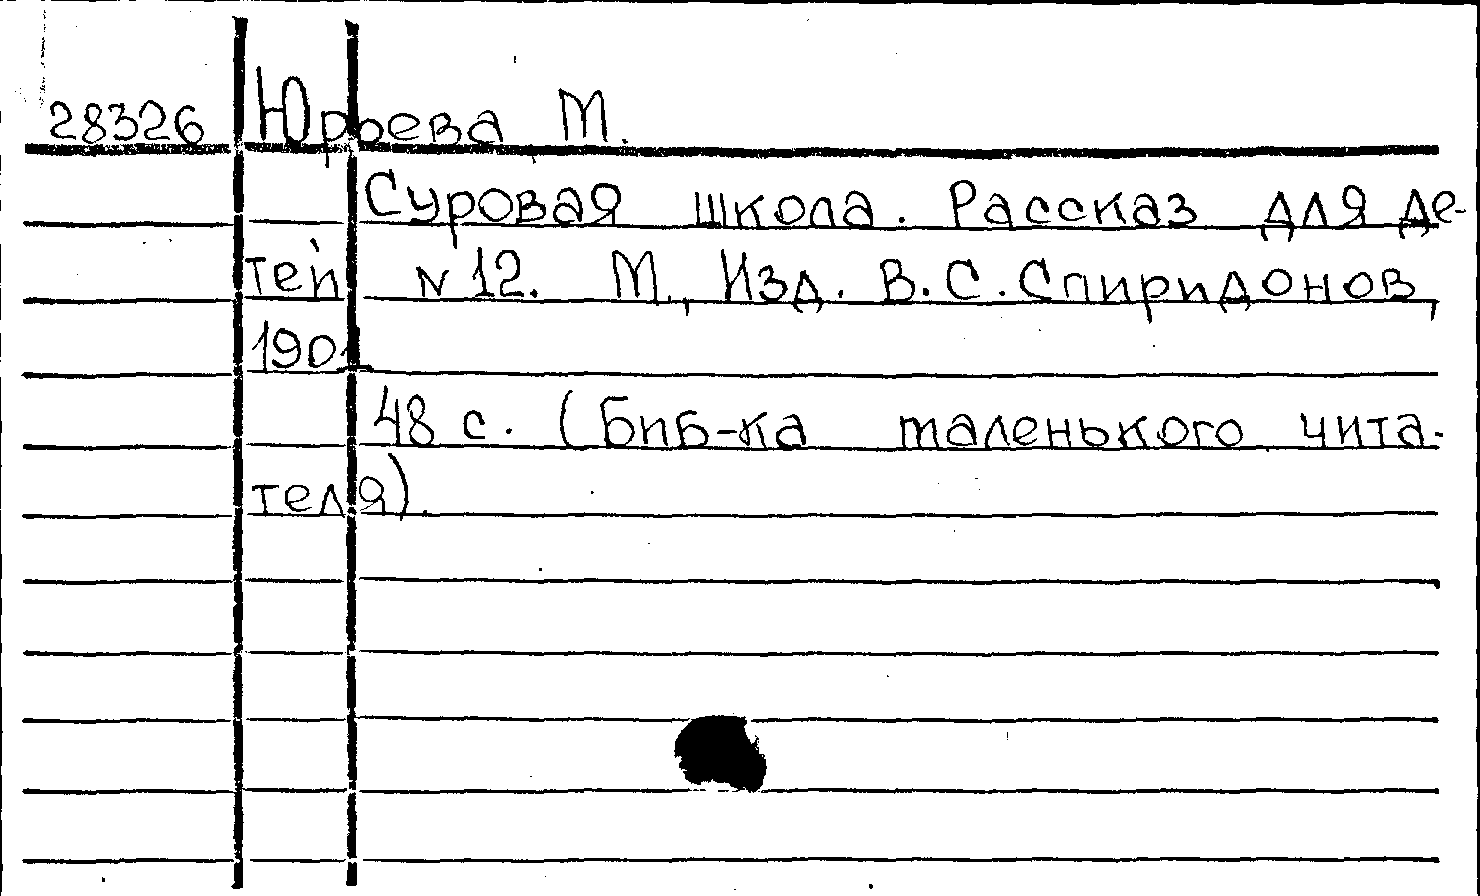 28326 Юрьева М.
Суровая школа. Рассказ для де-
тей N 12. М., Изд. В.С. Спиридонов,
1901
48 с. (Биб-ка маленького чита-
теля).